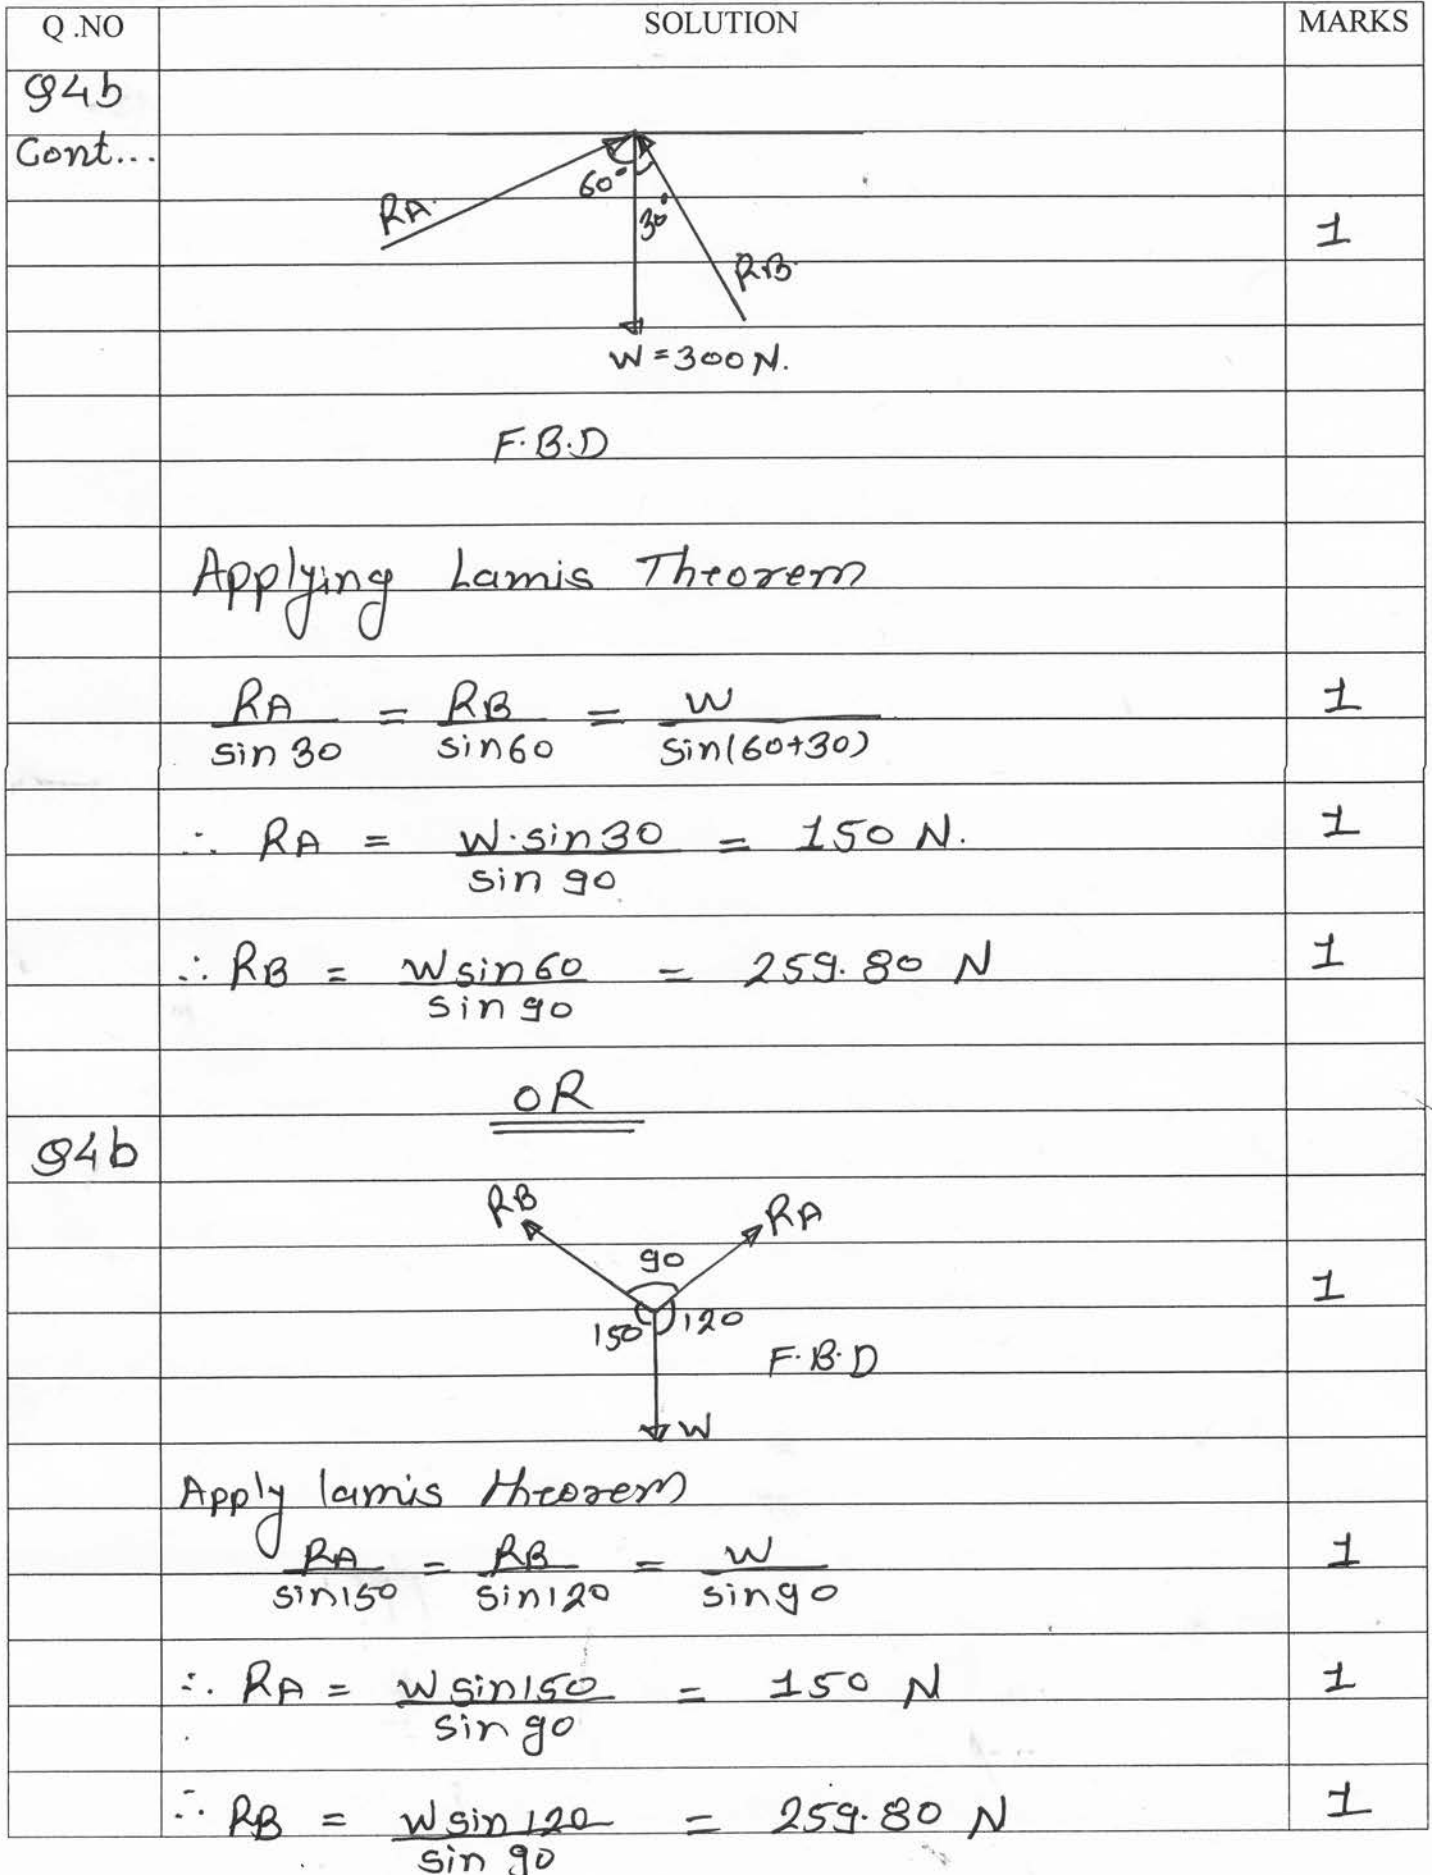 Q .NO SOLUTION MARKS
Q4b
Cont...
60°
RA.
30°
1
RB.
W = 300 N.
F.B.D
Applying Lamis Theorem
RA/sin 30 = RB/sin60 = W/sin(60+30) 1
∴ RA = W.sin30/sin 90 = 150 N. 1
∴ RB = Wsin60/sin90 = 259.80 N 1
OR
Q4b
RB RA
90
1
150 120
F.B.D
W
Apply lamis theorem
RA/sin150 = RB/sin120 = W/sin90 1
∴ RA = W sin150/sin 90 = 150 N 1
∴ RB = W sin 120/sin 90 = 259.80 N 1